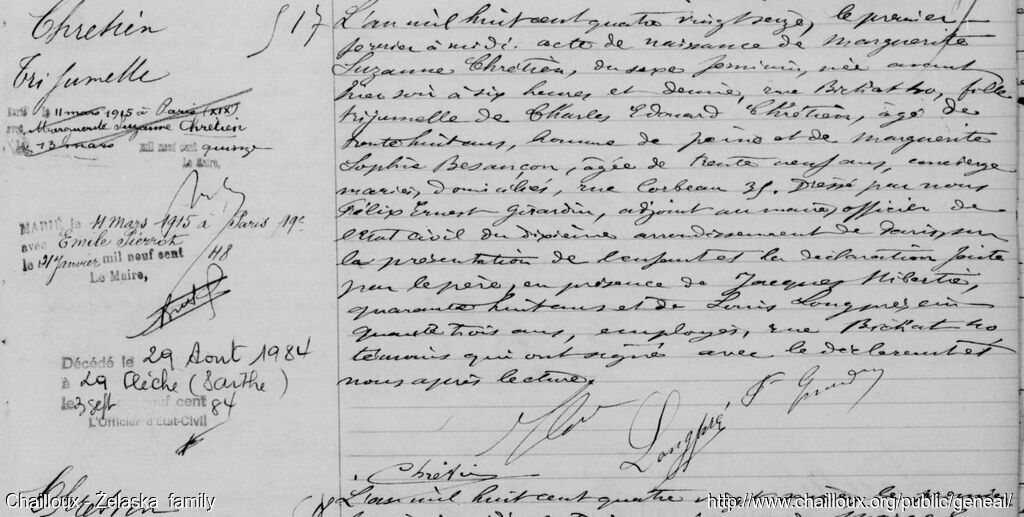 Chretien
517
Trijumelle
Marié le 11 mars 1915 à Paris (XIX)
avec Marguerite Suzanne Chrétien
13 mars mil neuf cent quinze
Le Maire,
MARIÉ le 11 Mars 1915 à Paris 19e
avec Emile Pierrot
le 21 Janvier mil neuf cent 48
Le Maire,
Décédé le 29 Aout 1984
à 29 Flèche (Sarthe)
le 3 Sept mil neuf cent 84
L'Officier d'Etat-Civil
L'an mil huit cent quatre vingt seize, le premier
fevrier à midi. acte de naissance de Marguerite
Suzanne Chrétien, du sexe feminin, née avant
hier soir à six heures et demie, rue Bichat 40, fille
trijumelle de Charles Edouard Chrétien, âgé de
trente huit ans, homme de peine et de Marguerite
Sophie Besançon, âgée de trente neuf ans, concierge
mariés, domiciliés, rue Corbeau 35. Dressé par nous
Félix Ernest Girardin, adjoint au maire, officier de
l'Etat civil du dixième arrondissement de Paris, sur
la présentation de l'enfant et la déclaration faite
par le père, en présence de Jacques
quarante huit ans et de Louis Longpré,
quarante trois ans, employés, rue Bichat 40
témoins qui ont signé avec le déclarant et
nous après lecture.
Longpré
Chrétien
L'an mil huit cent quatre vingt
Chailloux_Żelaska_family
http://www.chailloux.org/public/geneal/